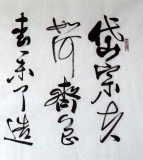 岱宗夫
如何齊魯
青未了造